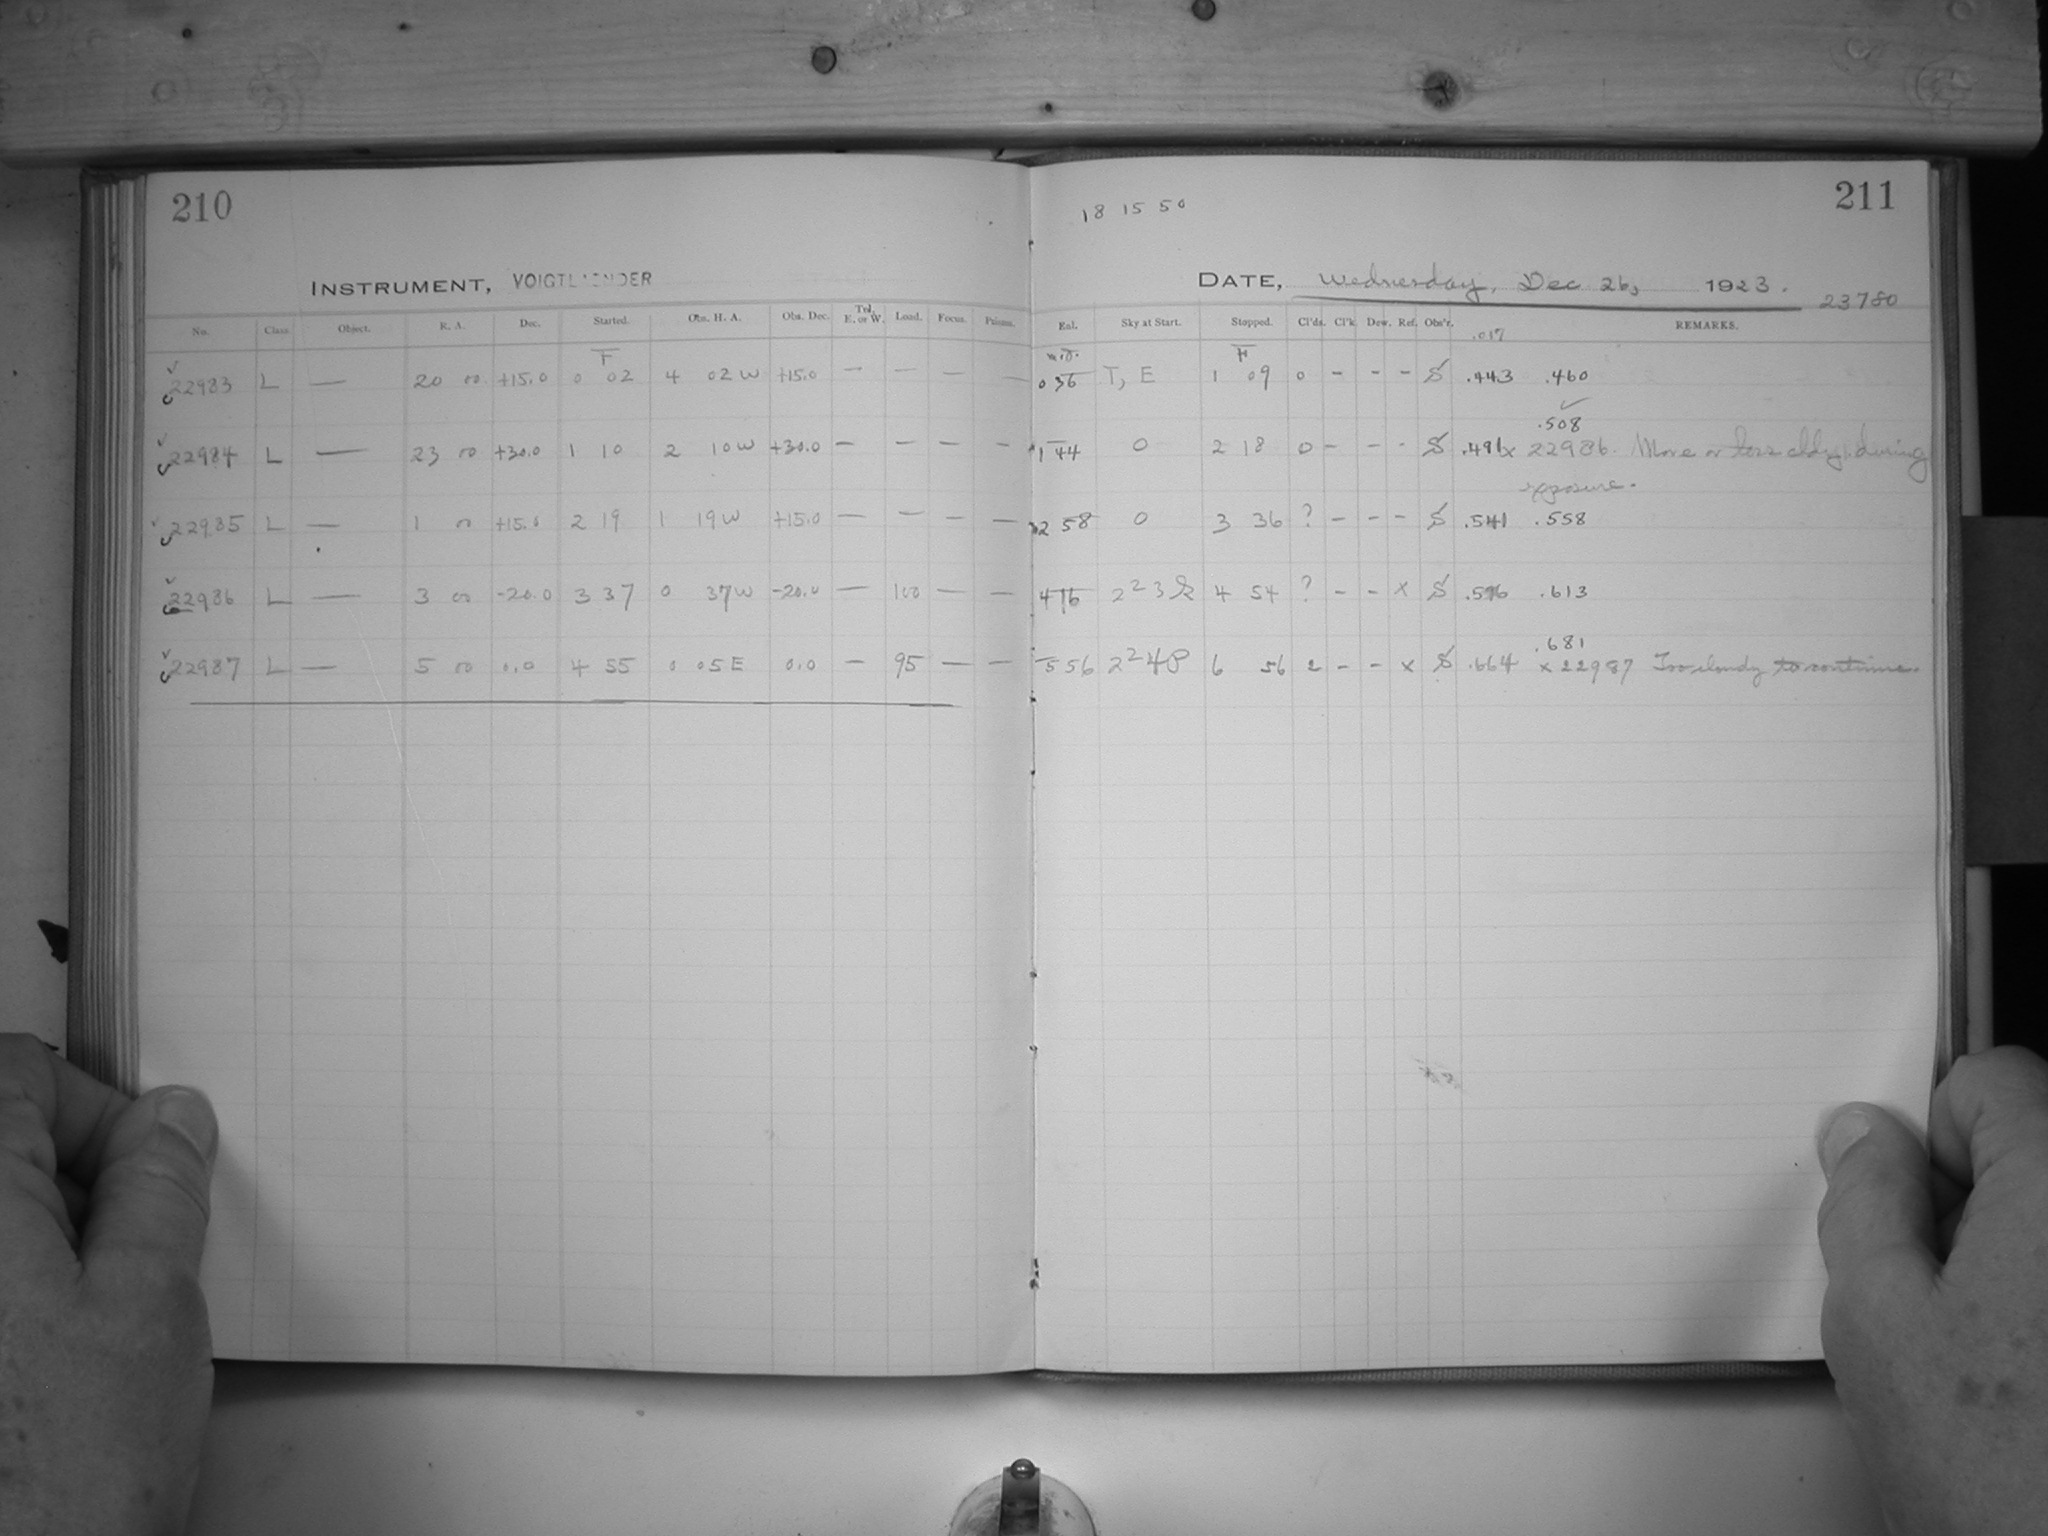 210
INSTRUMENT, VOIGTLAENDER
No. Class Object. R. A. Dec. Started. Obs. H. A. Obs. Dec. Tel. E. or W. Load. Focus. Prisms.
F
22983 L — 20 00 +15.0 0 02 4 02 W +15.0 — — — —
22984 L — 23 00 +30.0 1 10 2 10 W +30.0 — — — —
22985 L — 1 00 +15.0 2 19 1 19 W +15.0 — — — —
22986 L — 3 00 -20.0 3 37 0 37 W -20.0 — 100 — —
22987 L — 5 00 0.0 4 55 0 05 E 0.0 — 95 — —
211
18 15 50
DATE, Wednesday, Dec 26, 1923.
23780
Sky at Start. Stopped. Cl'ds. Cl'k Dew. Ref. Obs'r. REMARKS.
.017
F
0 36 T, E 1 09 0 - - - S .443 .460
.508
1 44 0 2 18 0 - - - S .491 x 22986. More or less cldy. during
exposure.
2 58 0 3 36 ? - - - S .541 .558
4 16 2 2 3 4 54 ? - - x S .596 .613
.681
5 56 2 2 4 P 6 56 2 - - x S .664 x 22987 Too cloudy to continue.